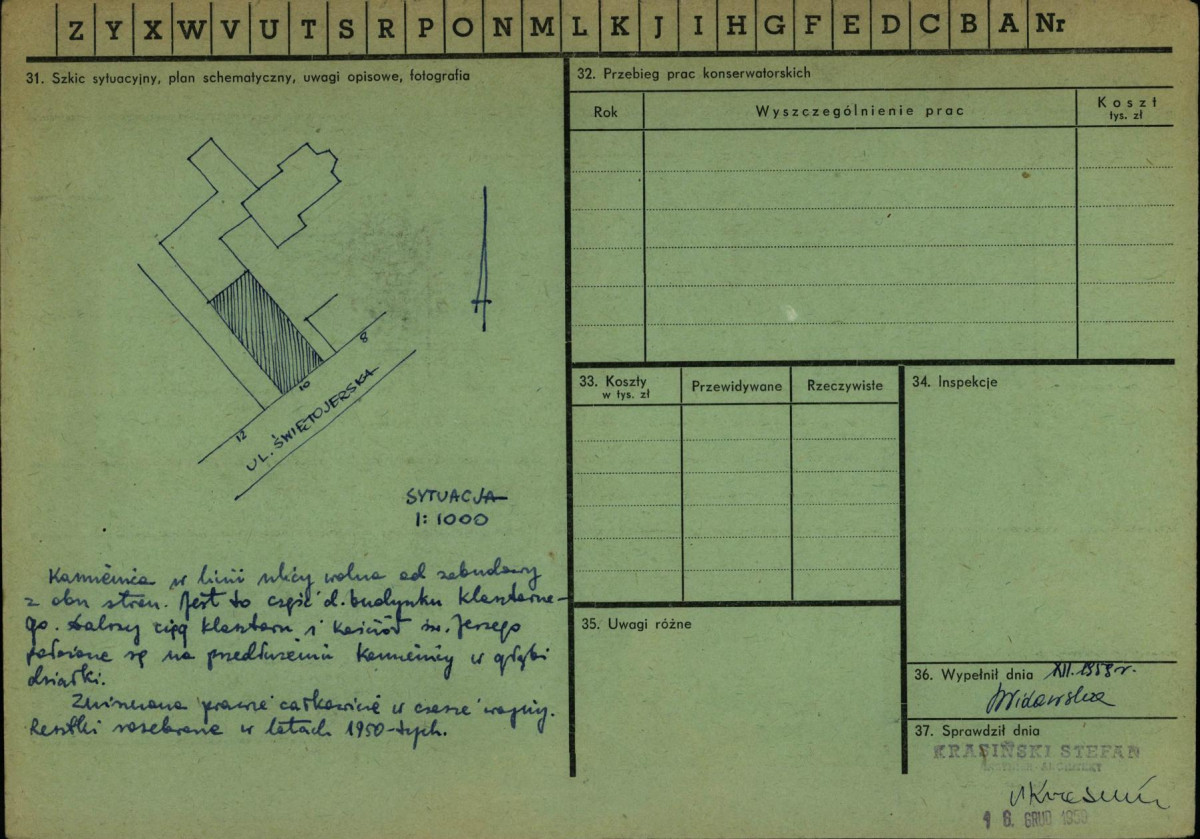 Z Y X W V U T S R P O N M L K J I H G F E D C B A Nr
31. Szkic sytuacyjny, plan schematyczny, uwagi opisowe, fotografia
8
10
12
UL. ŚWIĘTOJERSKA
SYTUACJA
1:1000
Kamienica w linii ulicy wolna od zabudowy
z obu stron. Jest to część d. budynku klasztorne-
go. Dalszy ciąg klasztoru i kościół św. Jerzego
położone są na przedłużeniu kamienicy w głębi
działki.
Zniszczona prawie całkowicie w czasie wojny.
Resztki rozebrane w latach 1950-tych.
32. Przebieg prac konserwatorskich
Rok
Wyszczególnienie prac
Koszt
tys. zł
33. Koszty
w tys. zł
Przewidywane
Rzeczywiste
34. Inspekcje
35. Uwagi różne
36. Wypełnił dnia XII.1959 r.
Widawska
37. Sprawdził dnia
KRASIŃSKI STEFAN
INŻYNIER ARCHITEKT
16. GRUD 1959